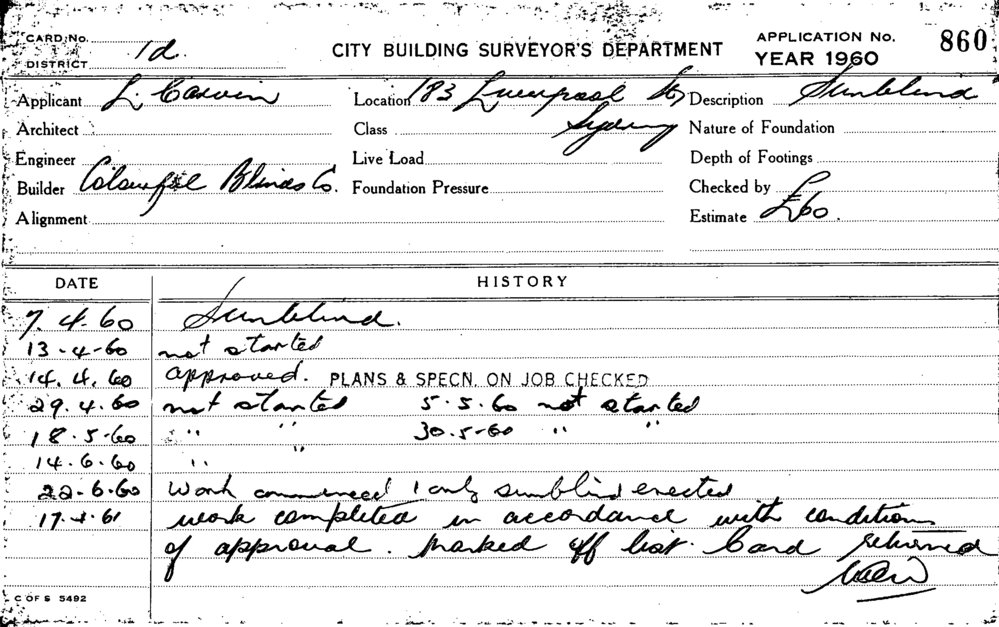 CARD No.
DISTRICT 1d.
CITY BUILDING SURVEYOR'S DEPARTMENT
APPLICATION No. 860
YEAR 1960
Applicant L. Location 183 Liverpool St, Description Sunblind
Architect Class Sydney Nature of Foundation
Engineer Live Load Depth of Footings
Builder Colourful Blinds Co. Foundation Pressure Checked by
Alignment Estimate £60.
DATE HISTORY
7.4.60 Sunblind.
13-4-60 not started
14.4.60 approved. PLANS & SPECN. ON JOB CHECKED
29.4.60 not started 5.5.60 not started
18.5-60 " " 30.5-60 " "
14.6.60 " "
22-6-60 Work commenced 1 only sunblind erected
17.4.61 work completed in accordance with conditions
of approval. Marked off list. Card returned
C OF S 5492